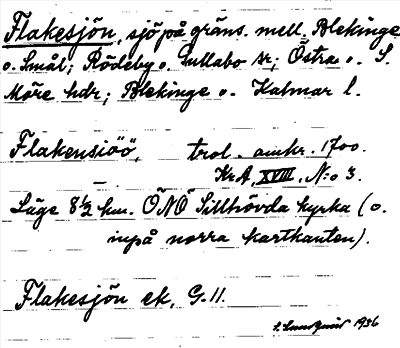 Flakesjön, sjö på gräns. mell. Blekinge
o. Smål; Rödeby o. Gullabo sr; Östra o. S.
Möre hdr; Blekinge o. Kalmar l.
Flakensiöö, trol. omkr. 1700.
KrA, XVIII, N:o 3.
Läge 8 1/2 km. ÖNÖ Sillhövda kyrka (o.
inpå norra kartkanten).
Flakesjön ek, G. 11.
1936